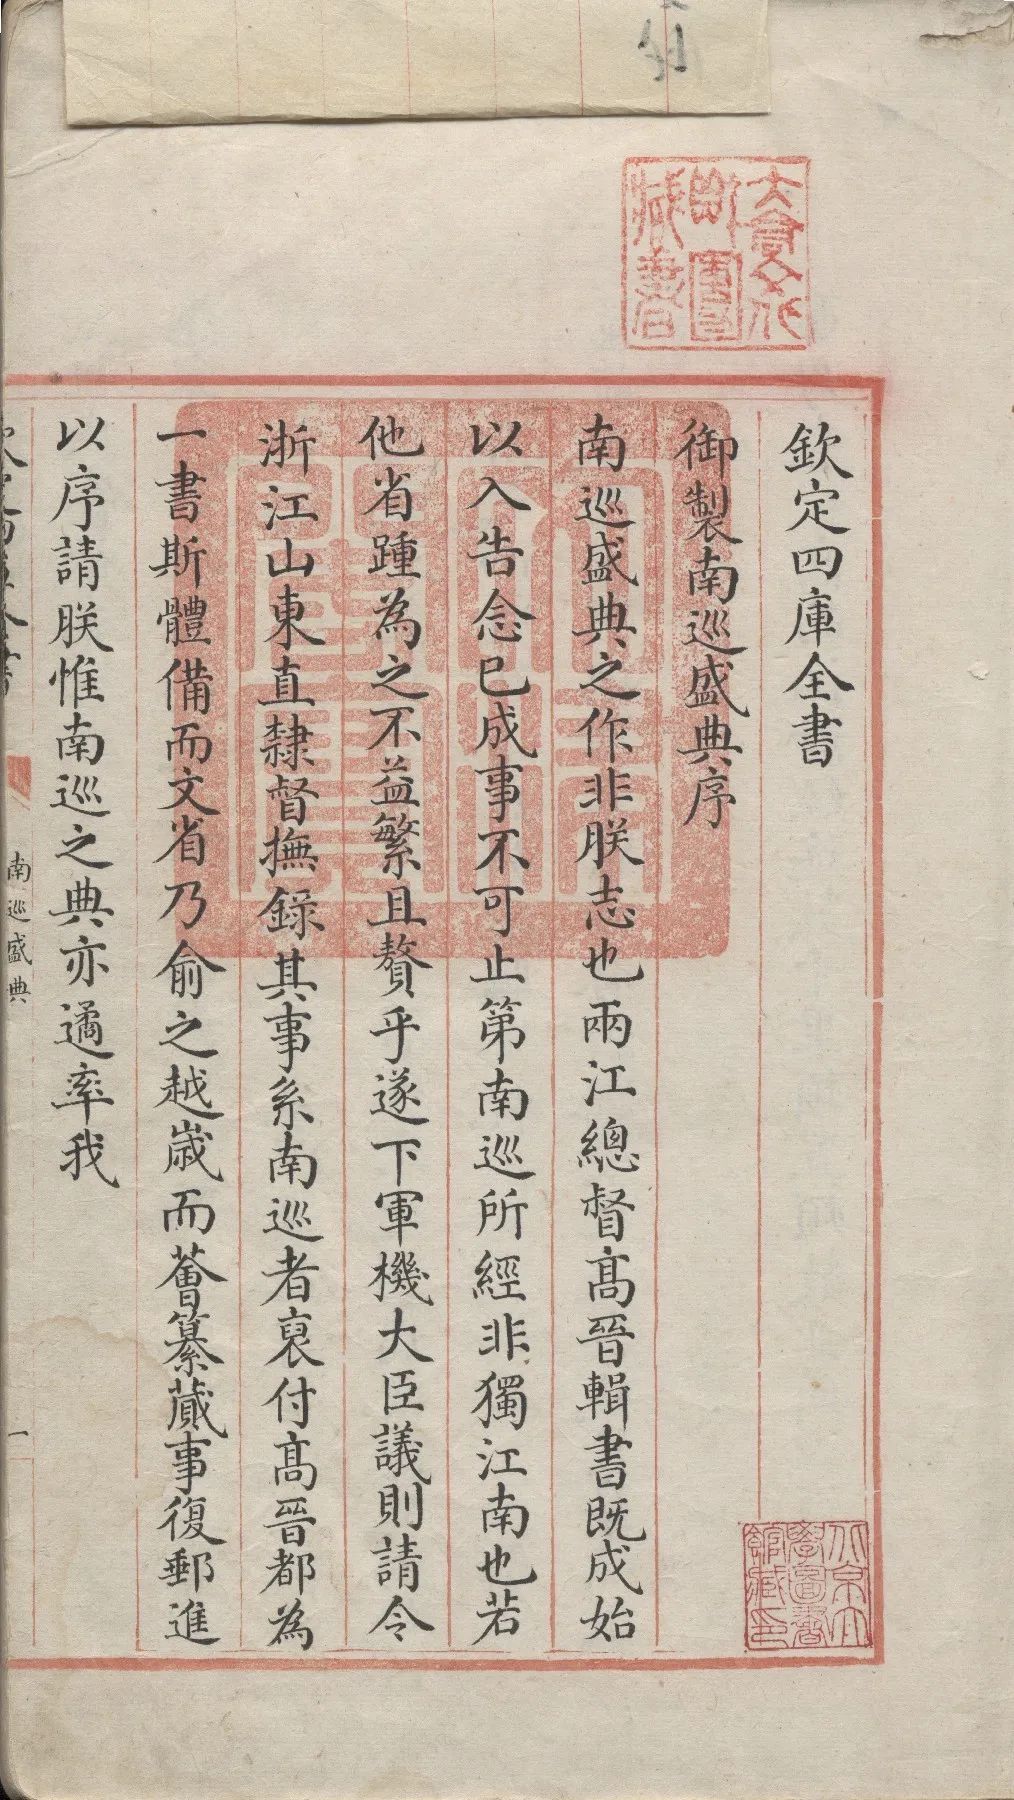 欽定四庫全書
御製南巡盛典序
南巡盛典之作非朕志也兩江總督髙晉輯書既成始
以入告念已成事不可止第南巡所經非獨江南也若
他省踵為之不益繁且贅乎遂下軍機大臣議則請令
浙江山東直隸督撫錄其事系南巡者裒付髙晉都為
一書斯體備而文省乃俞之越歲而薈纂蕆事復郵進
以序請朕惟南巡之典亦遹率我
南巡盛典
一
大倉文化
財團
藏書
北京大
學圖書
館藏印